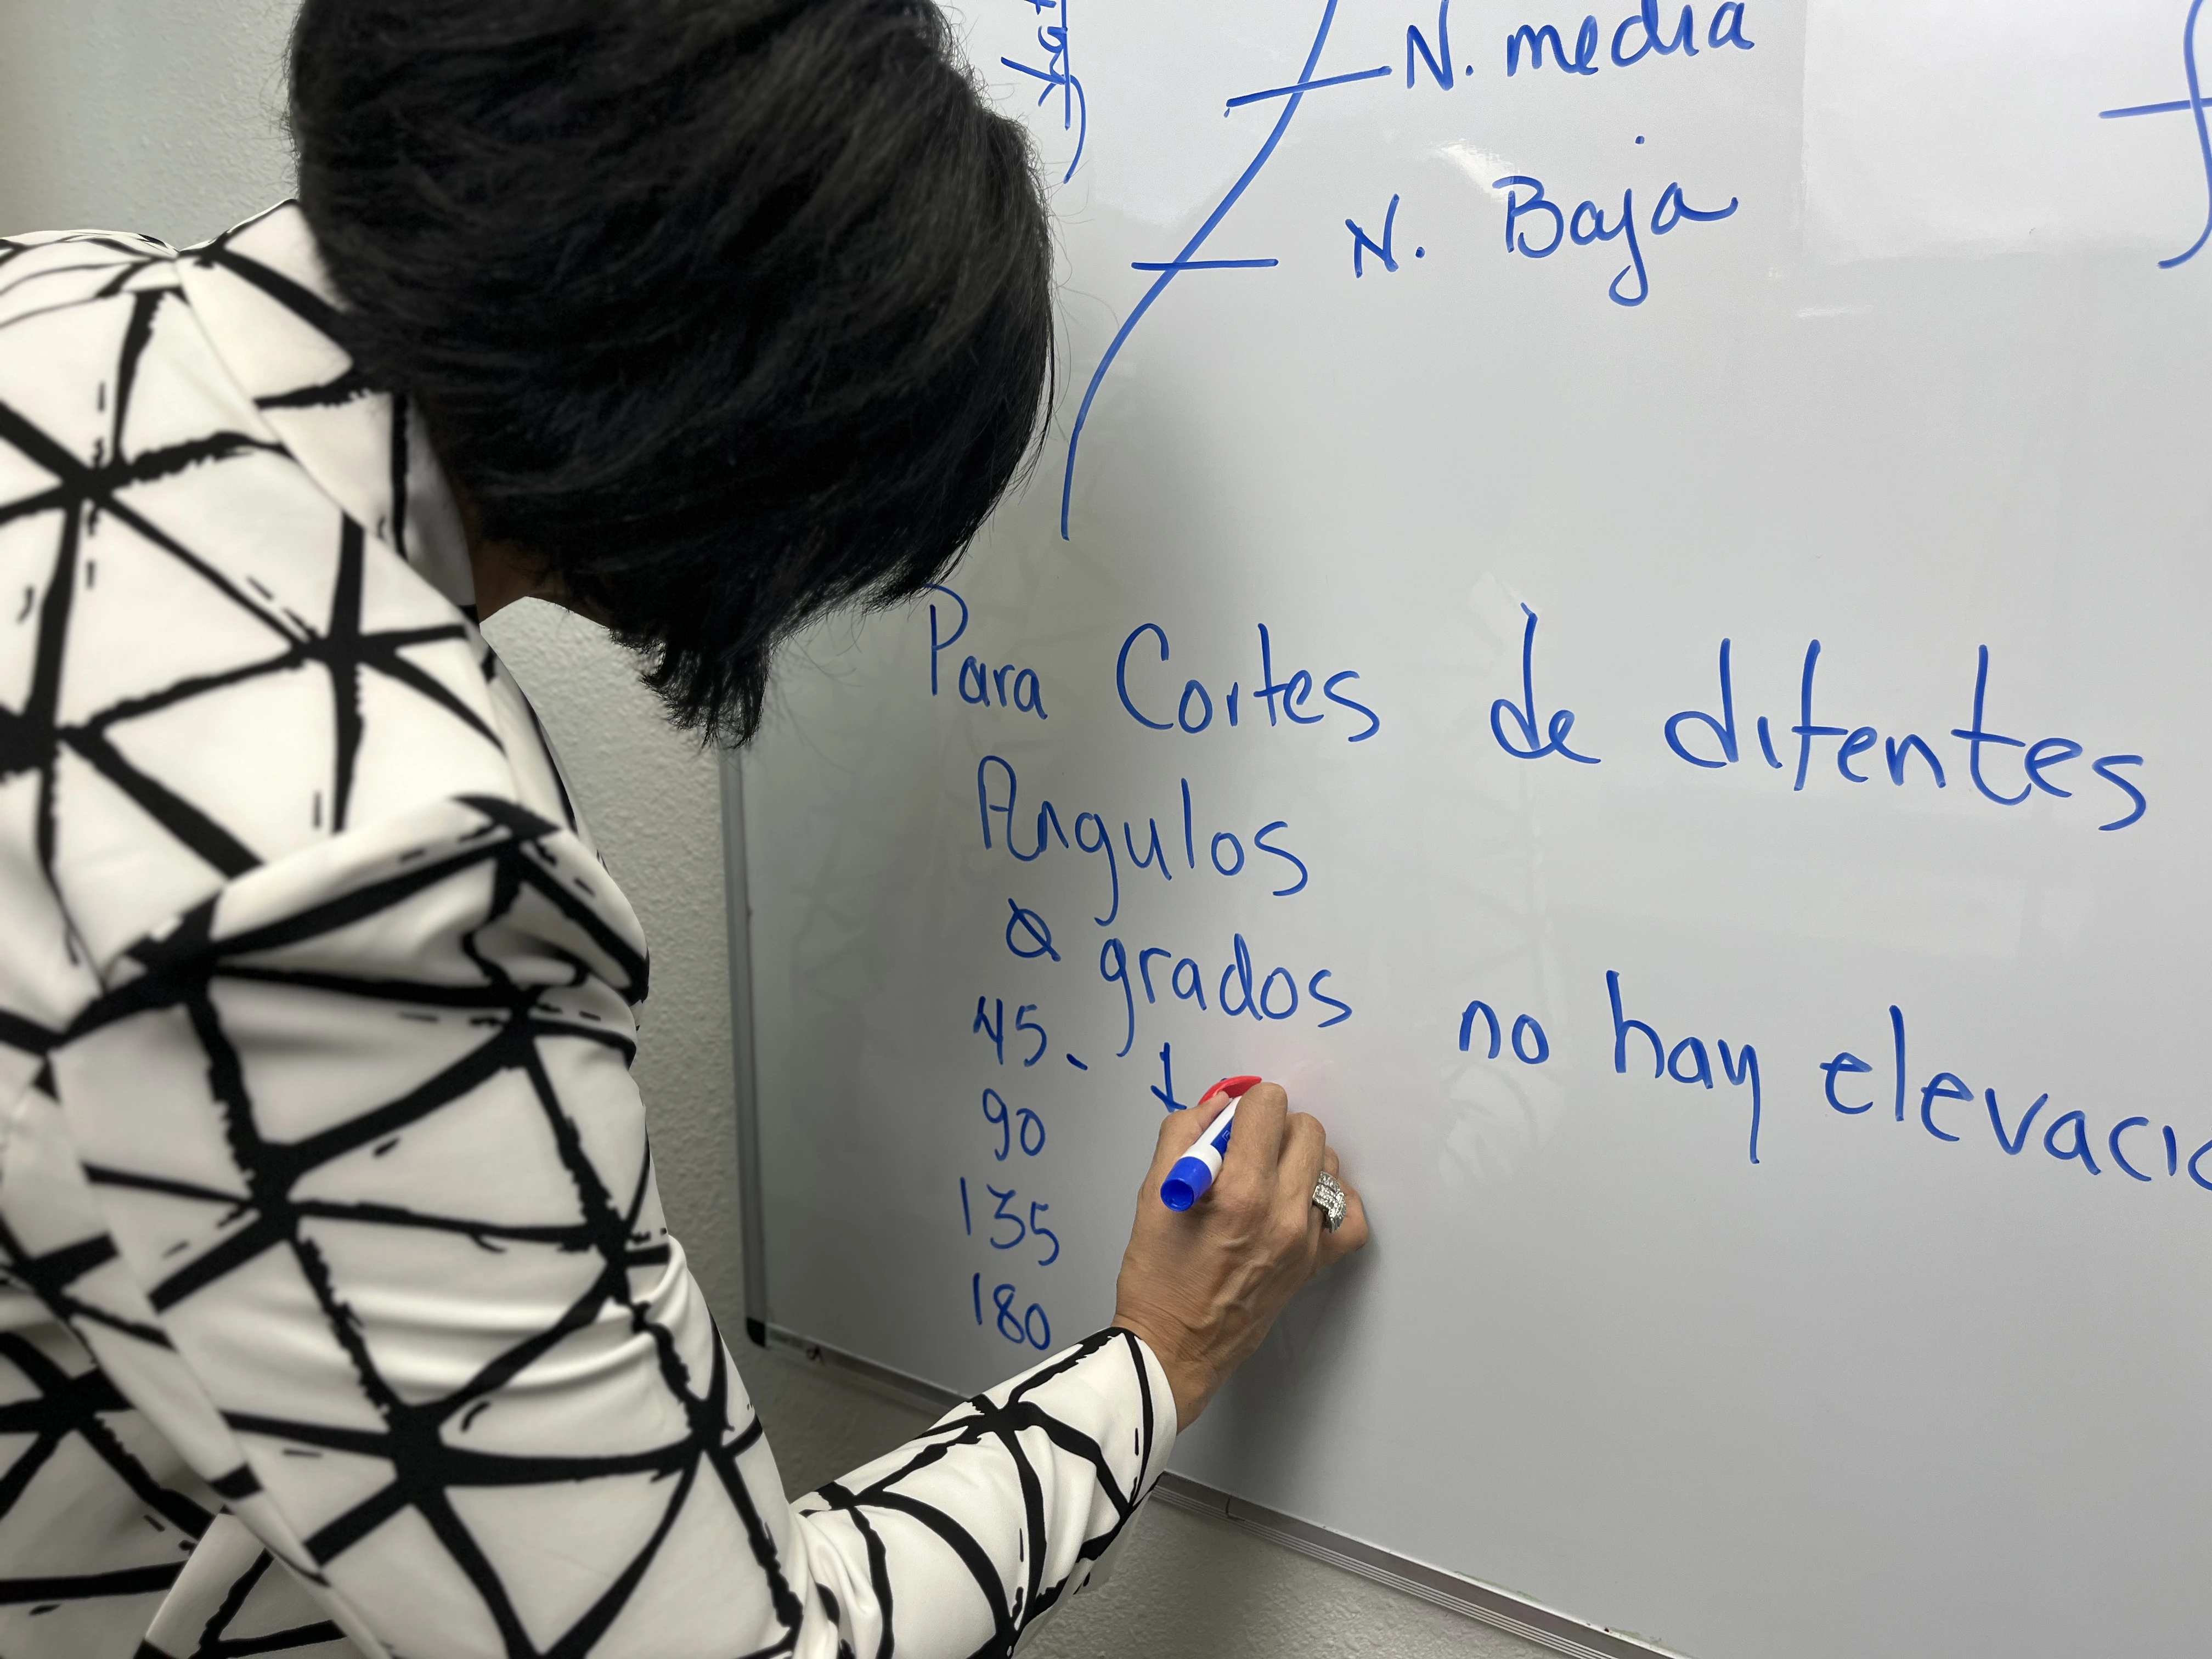 N. media
N. Baja
Para Cortes de difentes
Angulos
0 grados no hay elevacio
45
90
135
180